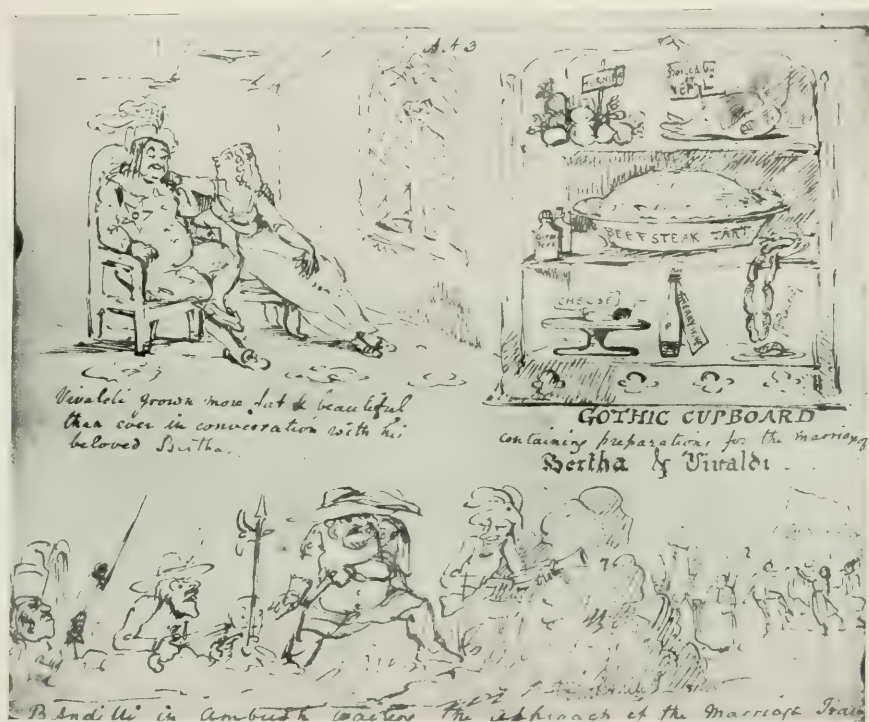 Act 3
Vivaldi grown more fat & beautiful
than ever in conversation with his
beloved Bertha.
BEEFSTEAK TART
CHEESE
GOTHIC CUPBOARD
containing preparations for the marriage of
Bertha & Vivaldi.
Banditti in ambush waiting the approach of the Marriage Train